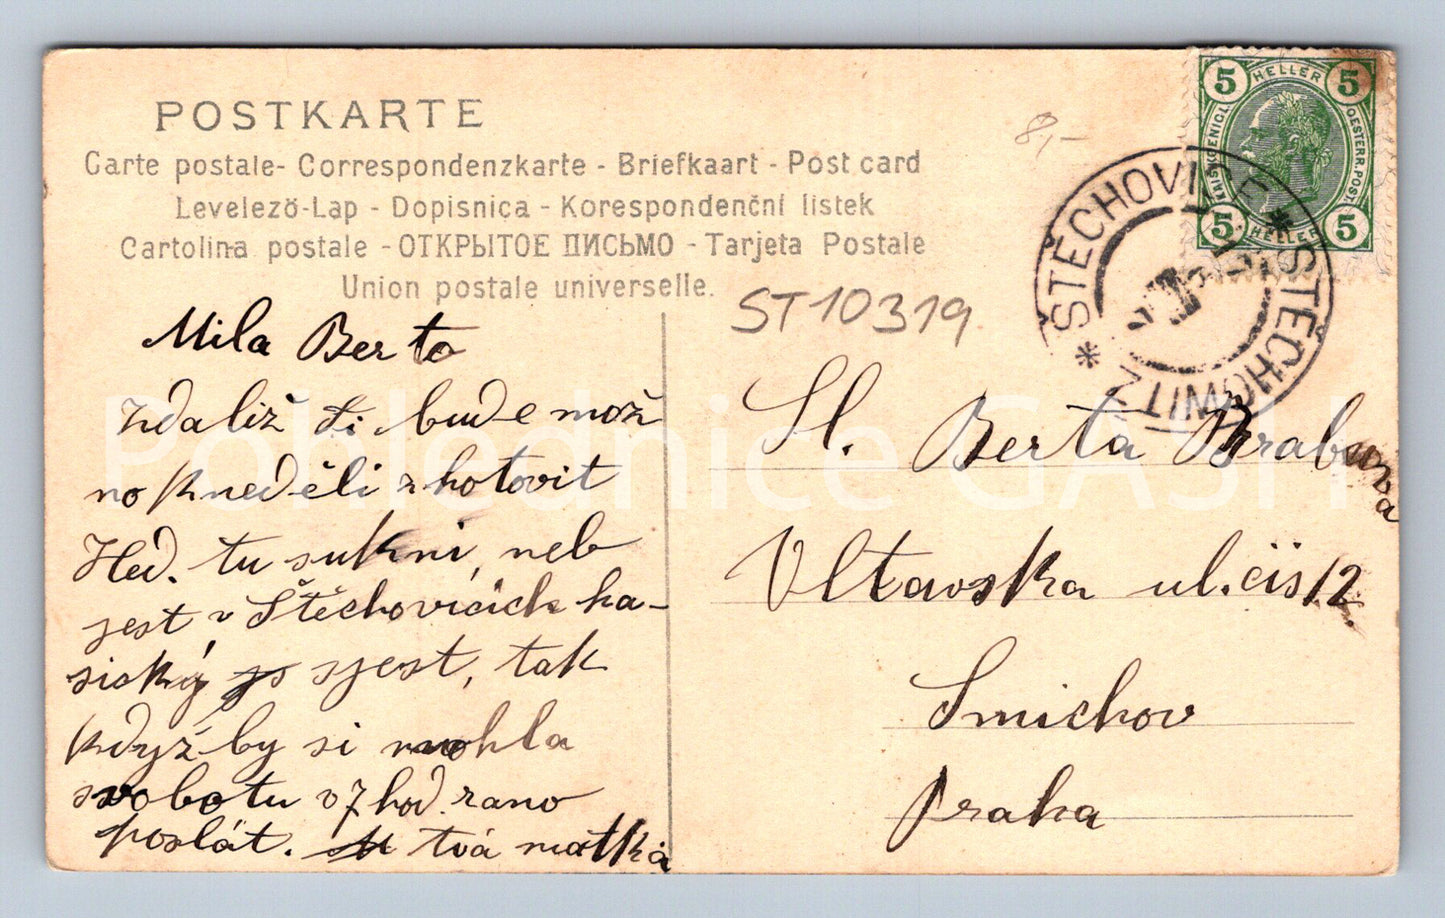 POSTKARTE
Carte postale- Correspondenzkarte - Briefkaart - Post card
Levelezö-Lap - Dopisnica - Korespondenční listek
Cartolina postale - ОТКРЫТОЕ ПИСЬМО - Tarjeta Postale
Union postale universelle.
8,-
ST10319
5 HELLER 5
KAIS. KOENIGL. OESTERR. POST.
5 HELLER 5
* ŠTĚCHOVICE * ŠTĚCHOWITZ
Mila Berto
zdaliž ti bude mož
no k neděli zhotovit
Hed. tu sukni, neb
jest v Štěchovicich ha-
sický sjest, tak
když by si mohla
svobotu v 7 hod. rano
poslát. tvá matka
Sl. Berta Brabu
Vltavska ul. čis 12.
Smichov
Praha
Pohlednice GASH